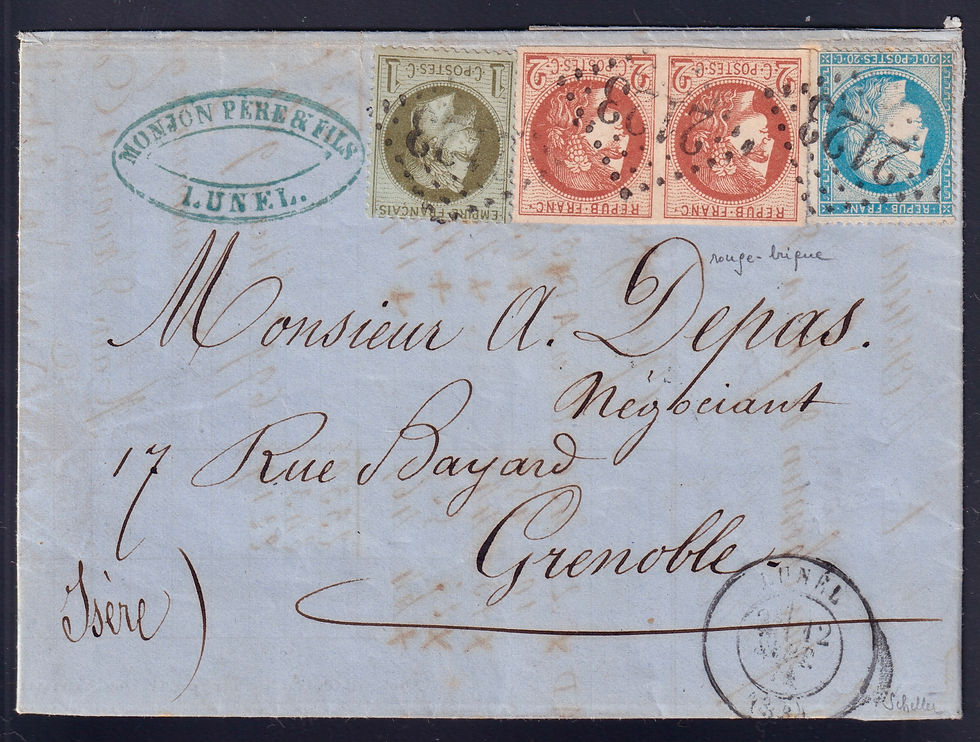 MONJON PÈRE & FILS
LUNEL.
1 C·POSTES·C 1
EMPIRE FRANÇAIS
2 C·POSTES·C 2
REPUB·FRANC·
2 C·POSTES·C 2
REPUB·FRANC·
20·C·POSTES·20·C
REPUB·FRANC·
2123
2123
rouge-brique
Monsieur A. Depas.
Négociant
17 Rue Bayard
Grenoble.
(Isère)
LUNEL
Scheller